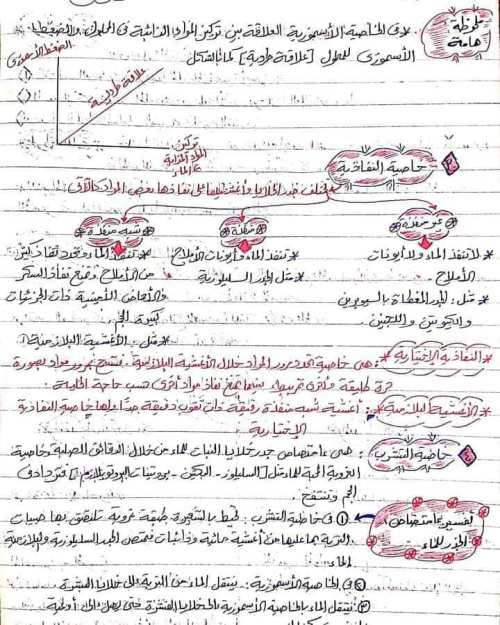 ملحوظة هامة
* في الخاصية الأسموزية العلاقة بين تركيز المواد الذائبة في المحلول والضغط
الأسموزي للمحلول [علاقة طردية] كما بالشكل
الضغط الأسموزي
علاقة طردية
تركيز
المواد الذائبة
في الماء
خاصية النفاذية
تختلف قدر الخلايا وأغشيتها على نفاذها بعض المواد كالآتي
غير منفذة
منفذة
شبه منفذة
* لا تنفذ الماء ولا أيونات
الأملاح.
* مثل: الجدر المغطاة بالسيوبرين
والكيوتين واللجنين.
* تنفذ الماء وأيونات الأملاح
* مثل الجدر السليلوزية
* تنفذ الماء وتحدد نفاذ كثير
من الأملاح وتمنع نفاذ السكر
والأحماض الأمينية ذات الجزئيات
كبيرة الحجم
* مثل: الأغشية البلازمية
* النفاذية الإختيارية *: هي خاصية تحدد مرور المواد خلال الأغشية البلازمية فتسمح بمرور مواد بصورة
حرة طليقة وأخرى ببطء بينما يمنع نفاذ مواد أخرى حسب حاجة الخلية.
* الأغشية البلازمية *: أغشية شبه منفذة رقيقة ذات ثقوب دقيقة جداً ولها خاصية النفاذية
الإختيارية
خاصية التشرب
: هي امتصاص جدر خلايا النبات للماء من خلال الدقائق الصلبة وخاصية
الغروية المحبة للماء مثل [السليلوز - البكتين - بروتينات البروتوبلازم] فتزداد في
الحجم وتنتفخ.
تفسير امتصاص الجذر للماء
① في خاصية التشرب: تحيط بالشعيرة طبقة غروية تلتصق بها حبيبات
التربة بما عليها من أغشية مائية وذائبات فتمتص الجدر السليلوزية والبلازمية
الماء
② في الخاصية الأسموزية: ينتقل الماء من التربة إلى خلايا البشرة
③ ينتقل الماء بالخاصية الأسموزية إلى خلايا القشرة حتى يصل إلى أوعية